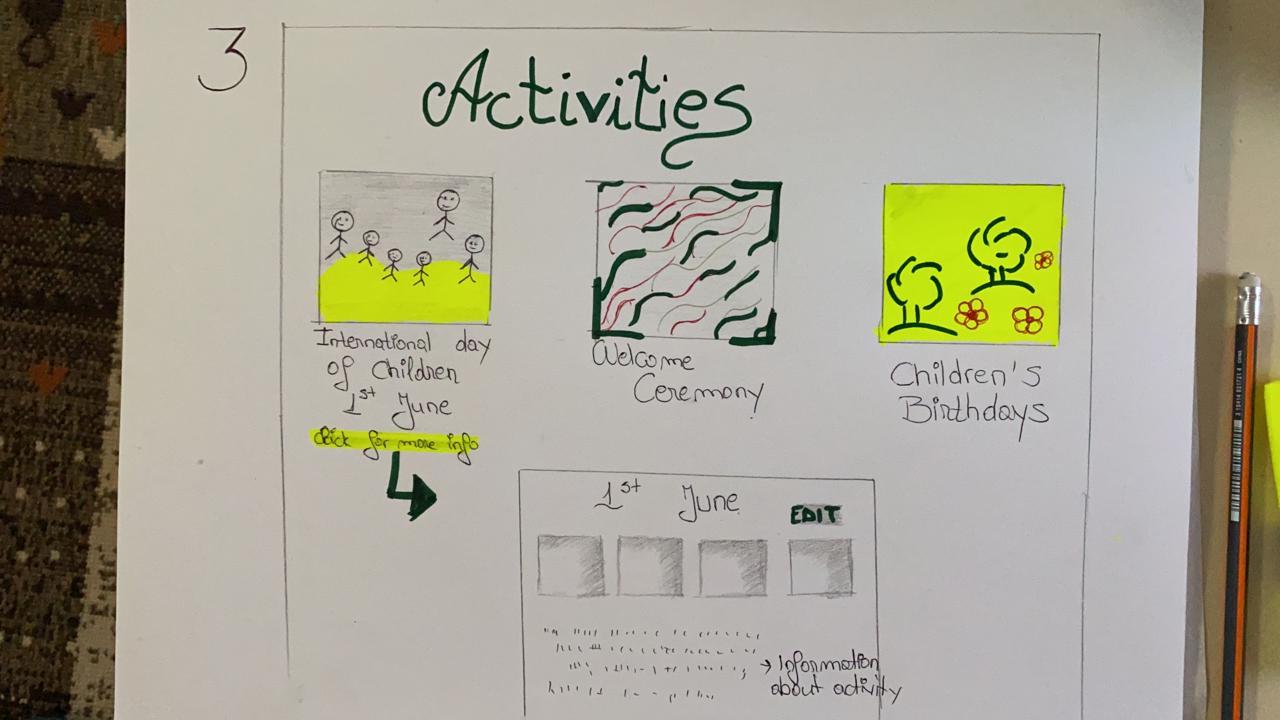 3
Activities
International day
of Children
1st June
click for more info
Welcome
Ceremony
Children's
Birthdays
1st June
EDIT
→ Information
about activity